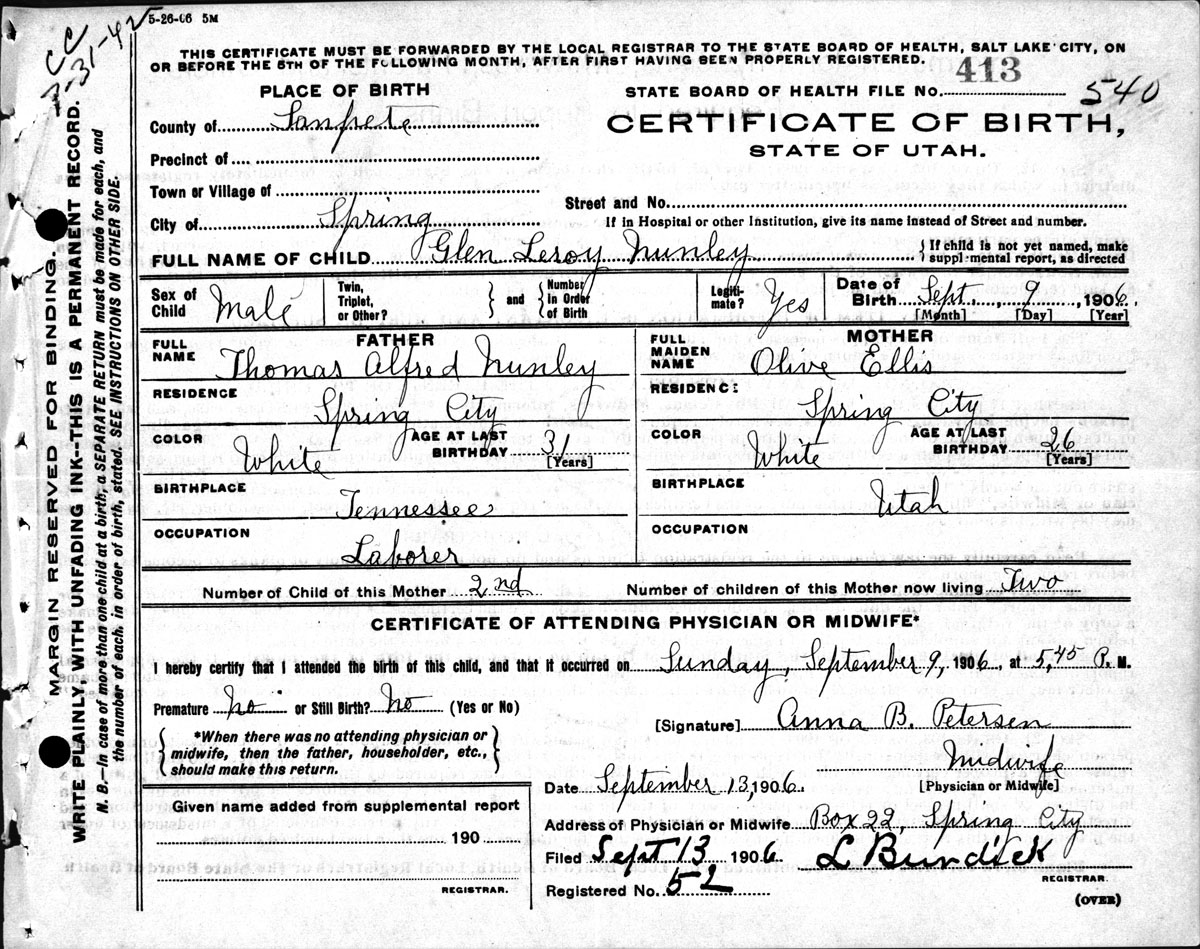 5-26-06 5M
CC
7-31-42
THIS CERTIFICATE MUST BE FORWARDED BY THE LOCAL REGISTRAR TO THE STATE BOARD OF HEALTH, SALT LAKE CITY, ON
OR BEFORE THE 5TH OF THE FOLLOWING MONTH, AFTER FIRST HAVING BEEN PROPERLY REGISTERED.
413
540
PLACE OF BIRTH
STATE BOARD OF HEALTH FILE No.
County of Sanpete
CERTIFICATE OF BIRTH,
Precinct of
STATE OF UTAH.
Town or Village of
Street and No.
City of Spring
If in Hospital or other Institution, give its name instead of Street and number.
FULL NAME OF CHILD Glen Leroy Nunley
{If child is not yet named, make
supplemental report, as directed
Sex of Child Male
Twin, Triplet, or Other? } and { Number in Order of Birth
Legiti-mate? Yes
Date of Birth Sept. 9, 1906.
[Month] [Day] [Year]
FATHER
FULL NAME Thomas Alfred Nunley
MOTHER
FULL MAIDEN NAME Olive Ellis
RESIDENCE Spring City
RESIDENCE Spring City
COLOR White
AGE AT LAST BIRTHDAY 31 [Years]
COLOR White
AGE AT LAST BIRTHDAY 26 [Years]
BIRTHPLACE Tennessee
BIRTHPLACE Utah
OCCUPATION Laborer
OCCUPATION
Number of Child of this Mother 2nd
Number of children of this Mother now living Two
CERTIFICATE OF ATTENDING PHYSICIAN OR MIDWIFE*
I hereby certify that I attended the birth of this child, and that it occurred on Sunday, September 9, 1906, at 5,45 P. M.
Premature No or Still Birth? No (Yes or No)
[Signature] Anna B. Petersen
*When there was no attending physician or
midwife, then the father, householder, etc.,
should make this return.
Midwife
[Physician or Midwife]
Date September 13, 1906.
Given name added from supplemental report
Address of Physician or Midwife Box 22, Spring City
190
Filed Sept 13 1906 L Bundick
REGISTRAR.
Registered No. 52
REGISTRAR.
(OVER)
MARGIN RESERVED FOR BINDING.
WRITE PLAINLY WITH UNFADING INK—THIS IS A PERMANENT RECORD.
N. B.—In case of more than one child at a birth, a SEPARATE RETURN must be made for each, and
the number of each, in order of birth, stated. SEE INSTRUCTIONS ON OTHER SIDE.